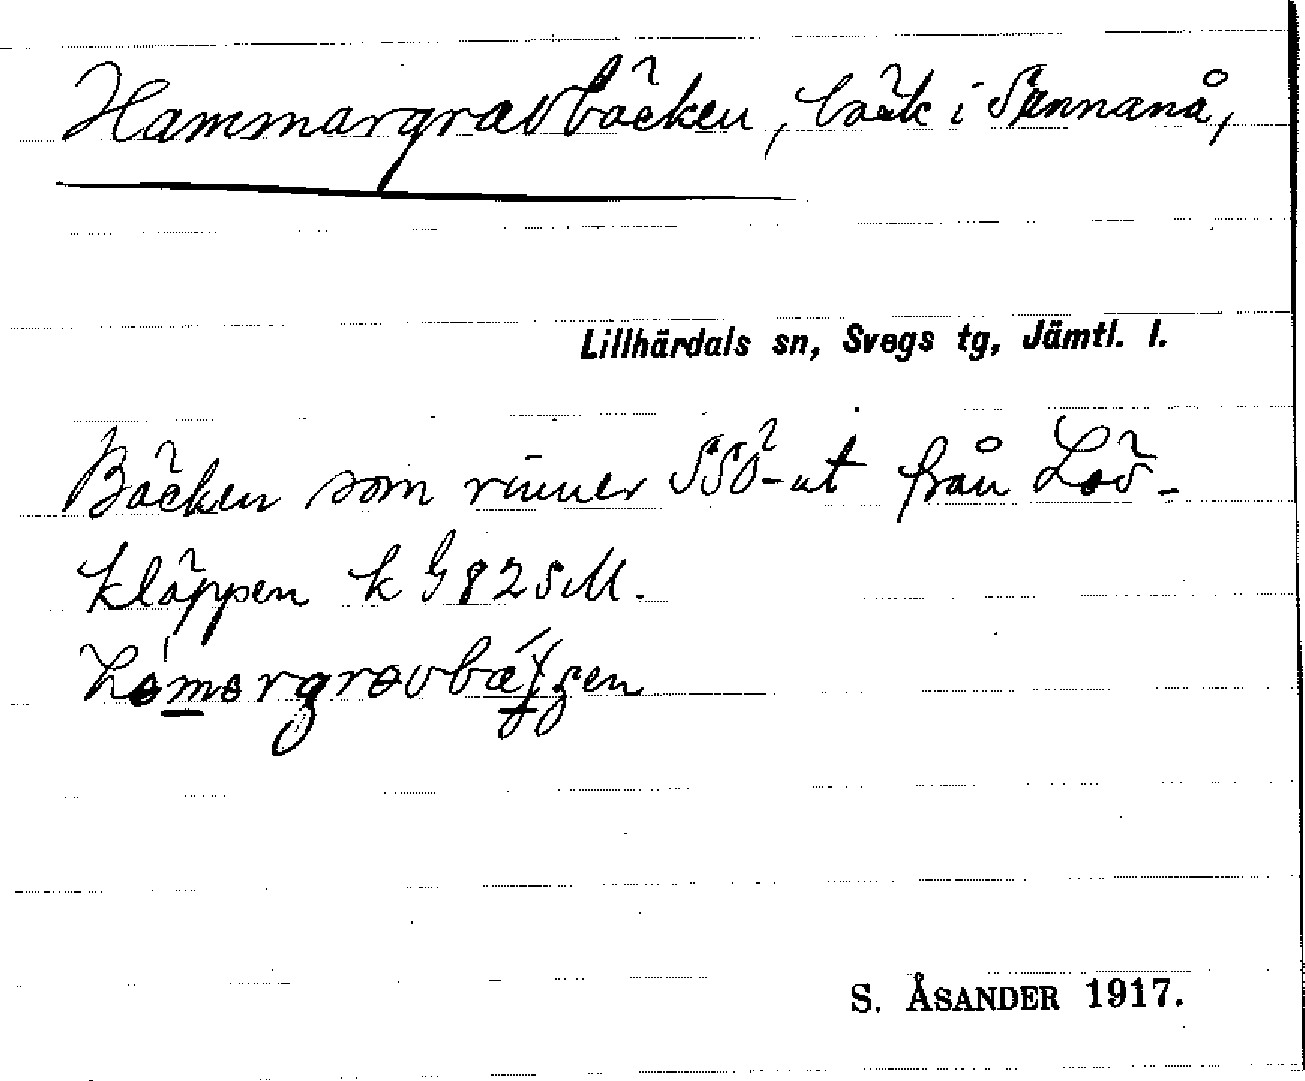 Hammargravbäcken, bäck i Sännanå,
Lillhärdals sn, Svegs tg, Jämtl. l.
Bäcken som rinner SSÖ-ut från Löv-
kläppen k G 825 M.
S. ÅSANDER 1917.